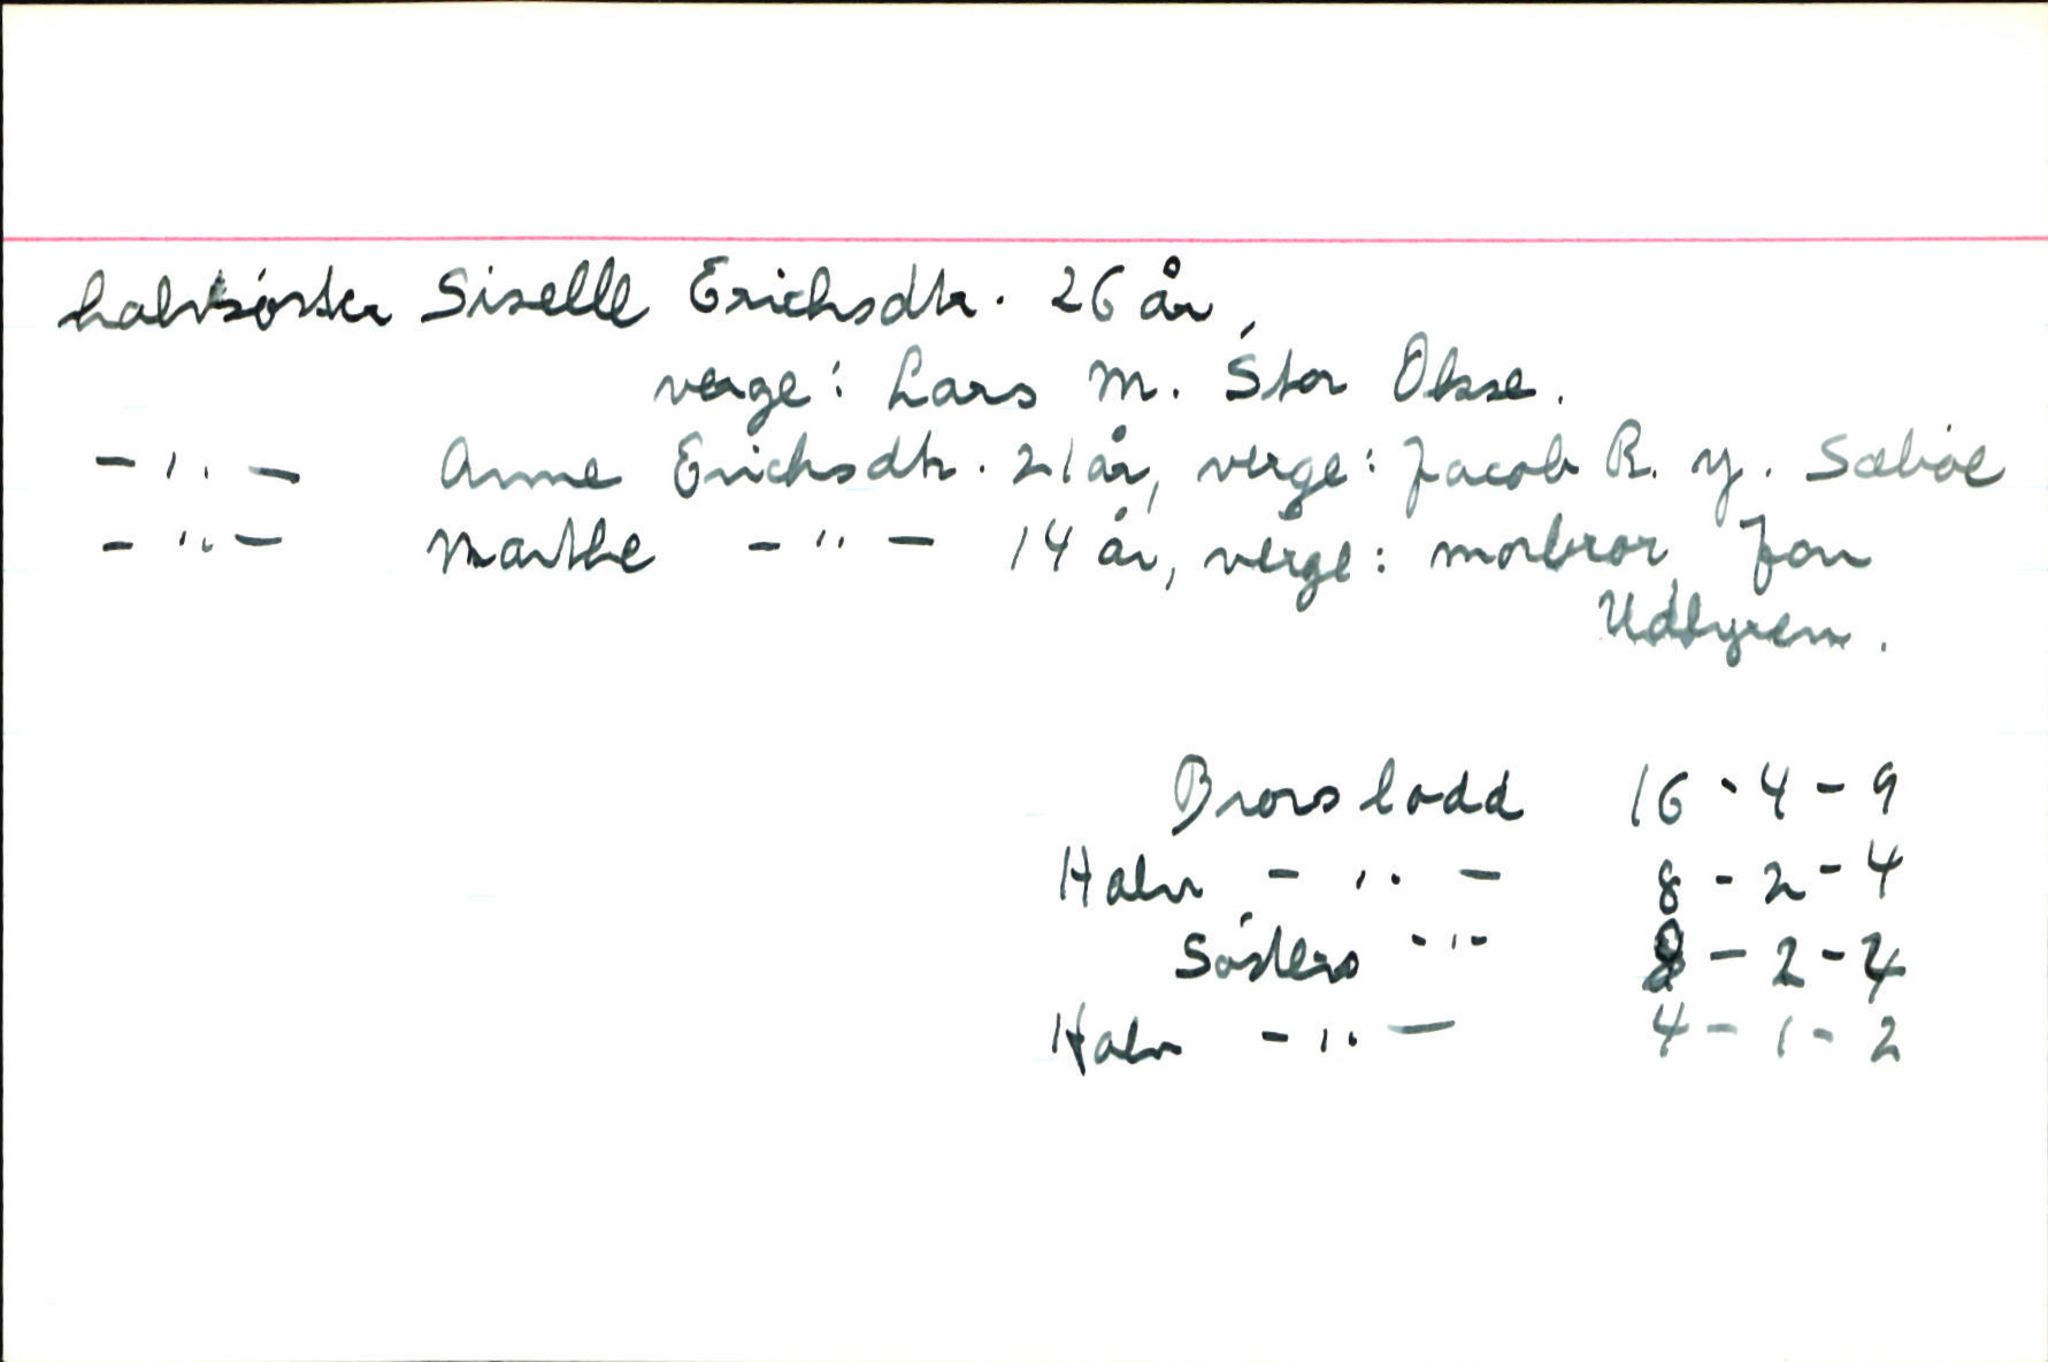 halvsöster Siselle Erichsdtr. 26 år,
verge: Lars M. Stor Okse.
- " - Anne Erichsdtr. 21 år, verge: Jacob R. y. Sæböe
- " - Marthe - " - 14 år, verge: morbror Jon
Udbyrem.
Brors lodd 16 - 4 - 9
Halv - " - 8 - 2 - 4
Sösters - " - 8 - 2 - 4
Halv - " - 4 - 1 - 2